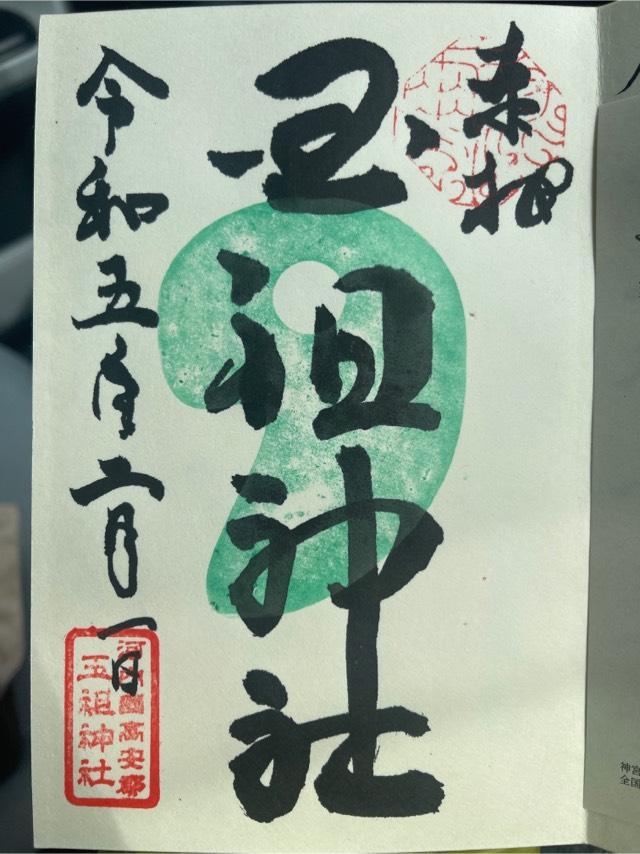 奉拝
玉祖神社
令和五年二月一日
河内國高安郡
玉祖神社
神宮
全国